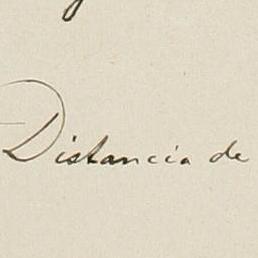 Distancia de